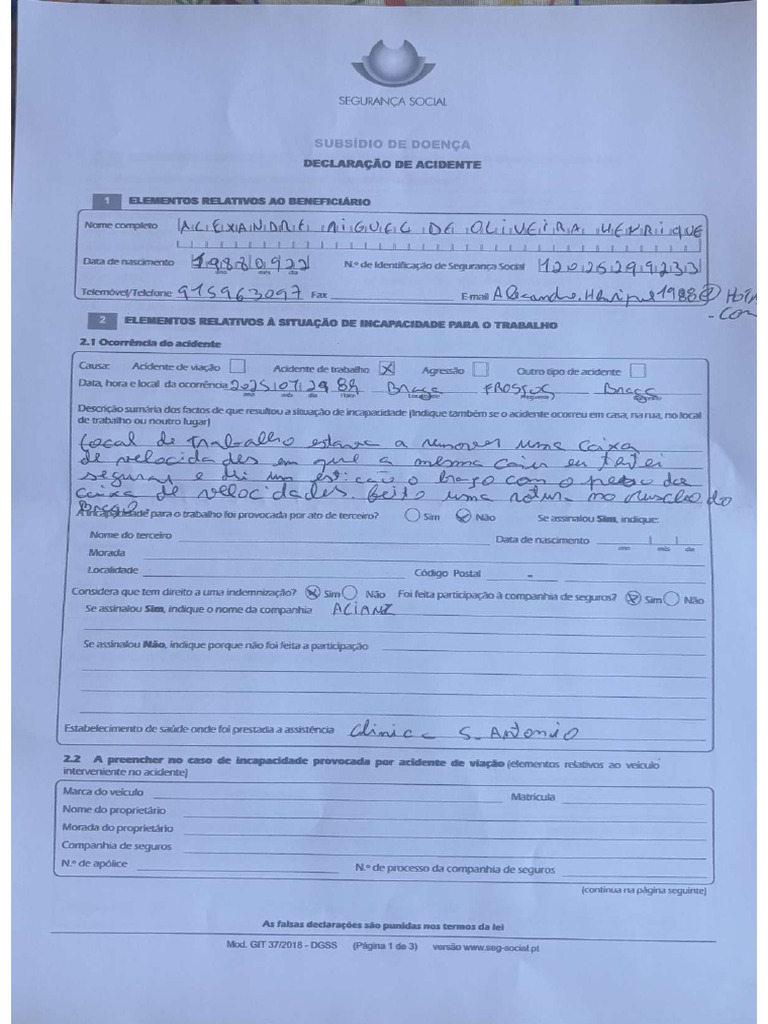 SEGURANÇA SOCIAL
SUBSÍDIO DE DOENÇA
DECLARAÇÃO DE ACIDENTE
1 ELEMENTOS RELATIVOS AO BENEFICIÁRIO
Nome completo ALEXANDRE MIGUEL DE OLIVEIRA HENRIQUE
Data de nascimento 19880922 N.º de Identificação de Segurança Social 12025299233
ano mês dia
Telemóvel/Telefone 915963097 Fax E-mail Alexandre.Henrique1988@Hotm
-com
2 ELEMENTOS RELATIVOS À SITUAÇÃO DE INCAPACIDADE PARA O TRABALHO
2.1 Ocorrência do acidente
Causa: Acidente de viação Acidente de trabalho X Agressão Outro tipo de acidente
Data, hora e local da ocorrência 2025 07 29 8H Braga FROSSOS Braga
ano mês dia Hora
Descrição sumária dos factos de que resultou a situação de incapacidade (Indique também se o acidente ocorreu em casa, na rua, no local
de trabalho ou noutro lugar)
Local de trabalho estava a remover uma caixa
de velocidades em que a mesma caiu eu tentei
segurar e dei um esticão o braço com o peso da
caixa de velocidades. feito uma rotura no musculo do
Braço
A incapacidade para o trabalho foi provocada por ato de terceiro? Sim Não Se assinalou Sim, indique:
Nome do terceiro Data de nascimento
ano mês dia
Morada
Localidade Código Postal -
Considera que tem direito a uma indemnização? Sim Não Foi feita participação à companhia de seguros? Sim Não
Se assinalou Sim, indique o nome da companhia ALIANZ
Se assinalou Não, indique porque não foi feita a participação
Estabelecimento de saúde onde foi prestada a assistência Clinica S. Antonio
2.2 A preencher no caso de incapacidade provocada por acidente de viação (elementos relativos ao veículo
interveniente no acidente)
Marca do veículo Matrícula
Nome do proprietário
Morada do proprietário
Companhia de seguros
N.º de apólice N.º de processo da companhia de seguros
(continua na página seguinte)
As falsas declarações são punidas nos termos da lei
Mod. GIT 37/2018 - DGSS (Página 1 de 3) versão www.seg-social.pt